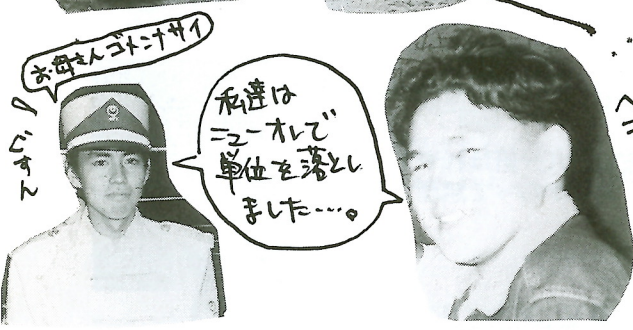 お母さんゴメンナサイ
ぐすん
私達は
ニューオレで
単位を落とし
ました……。